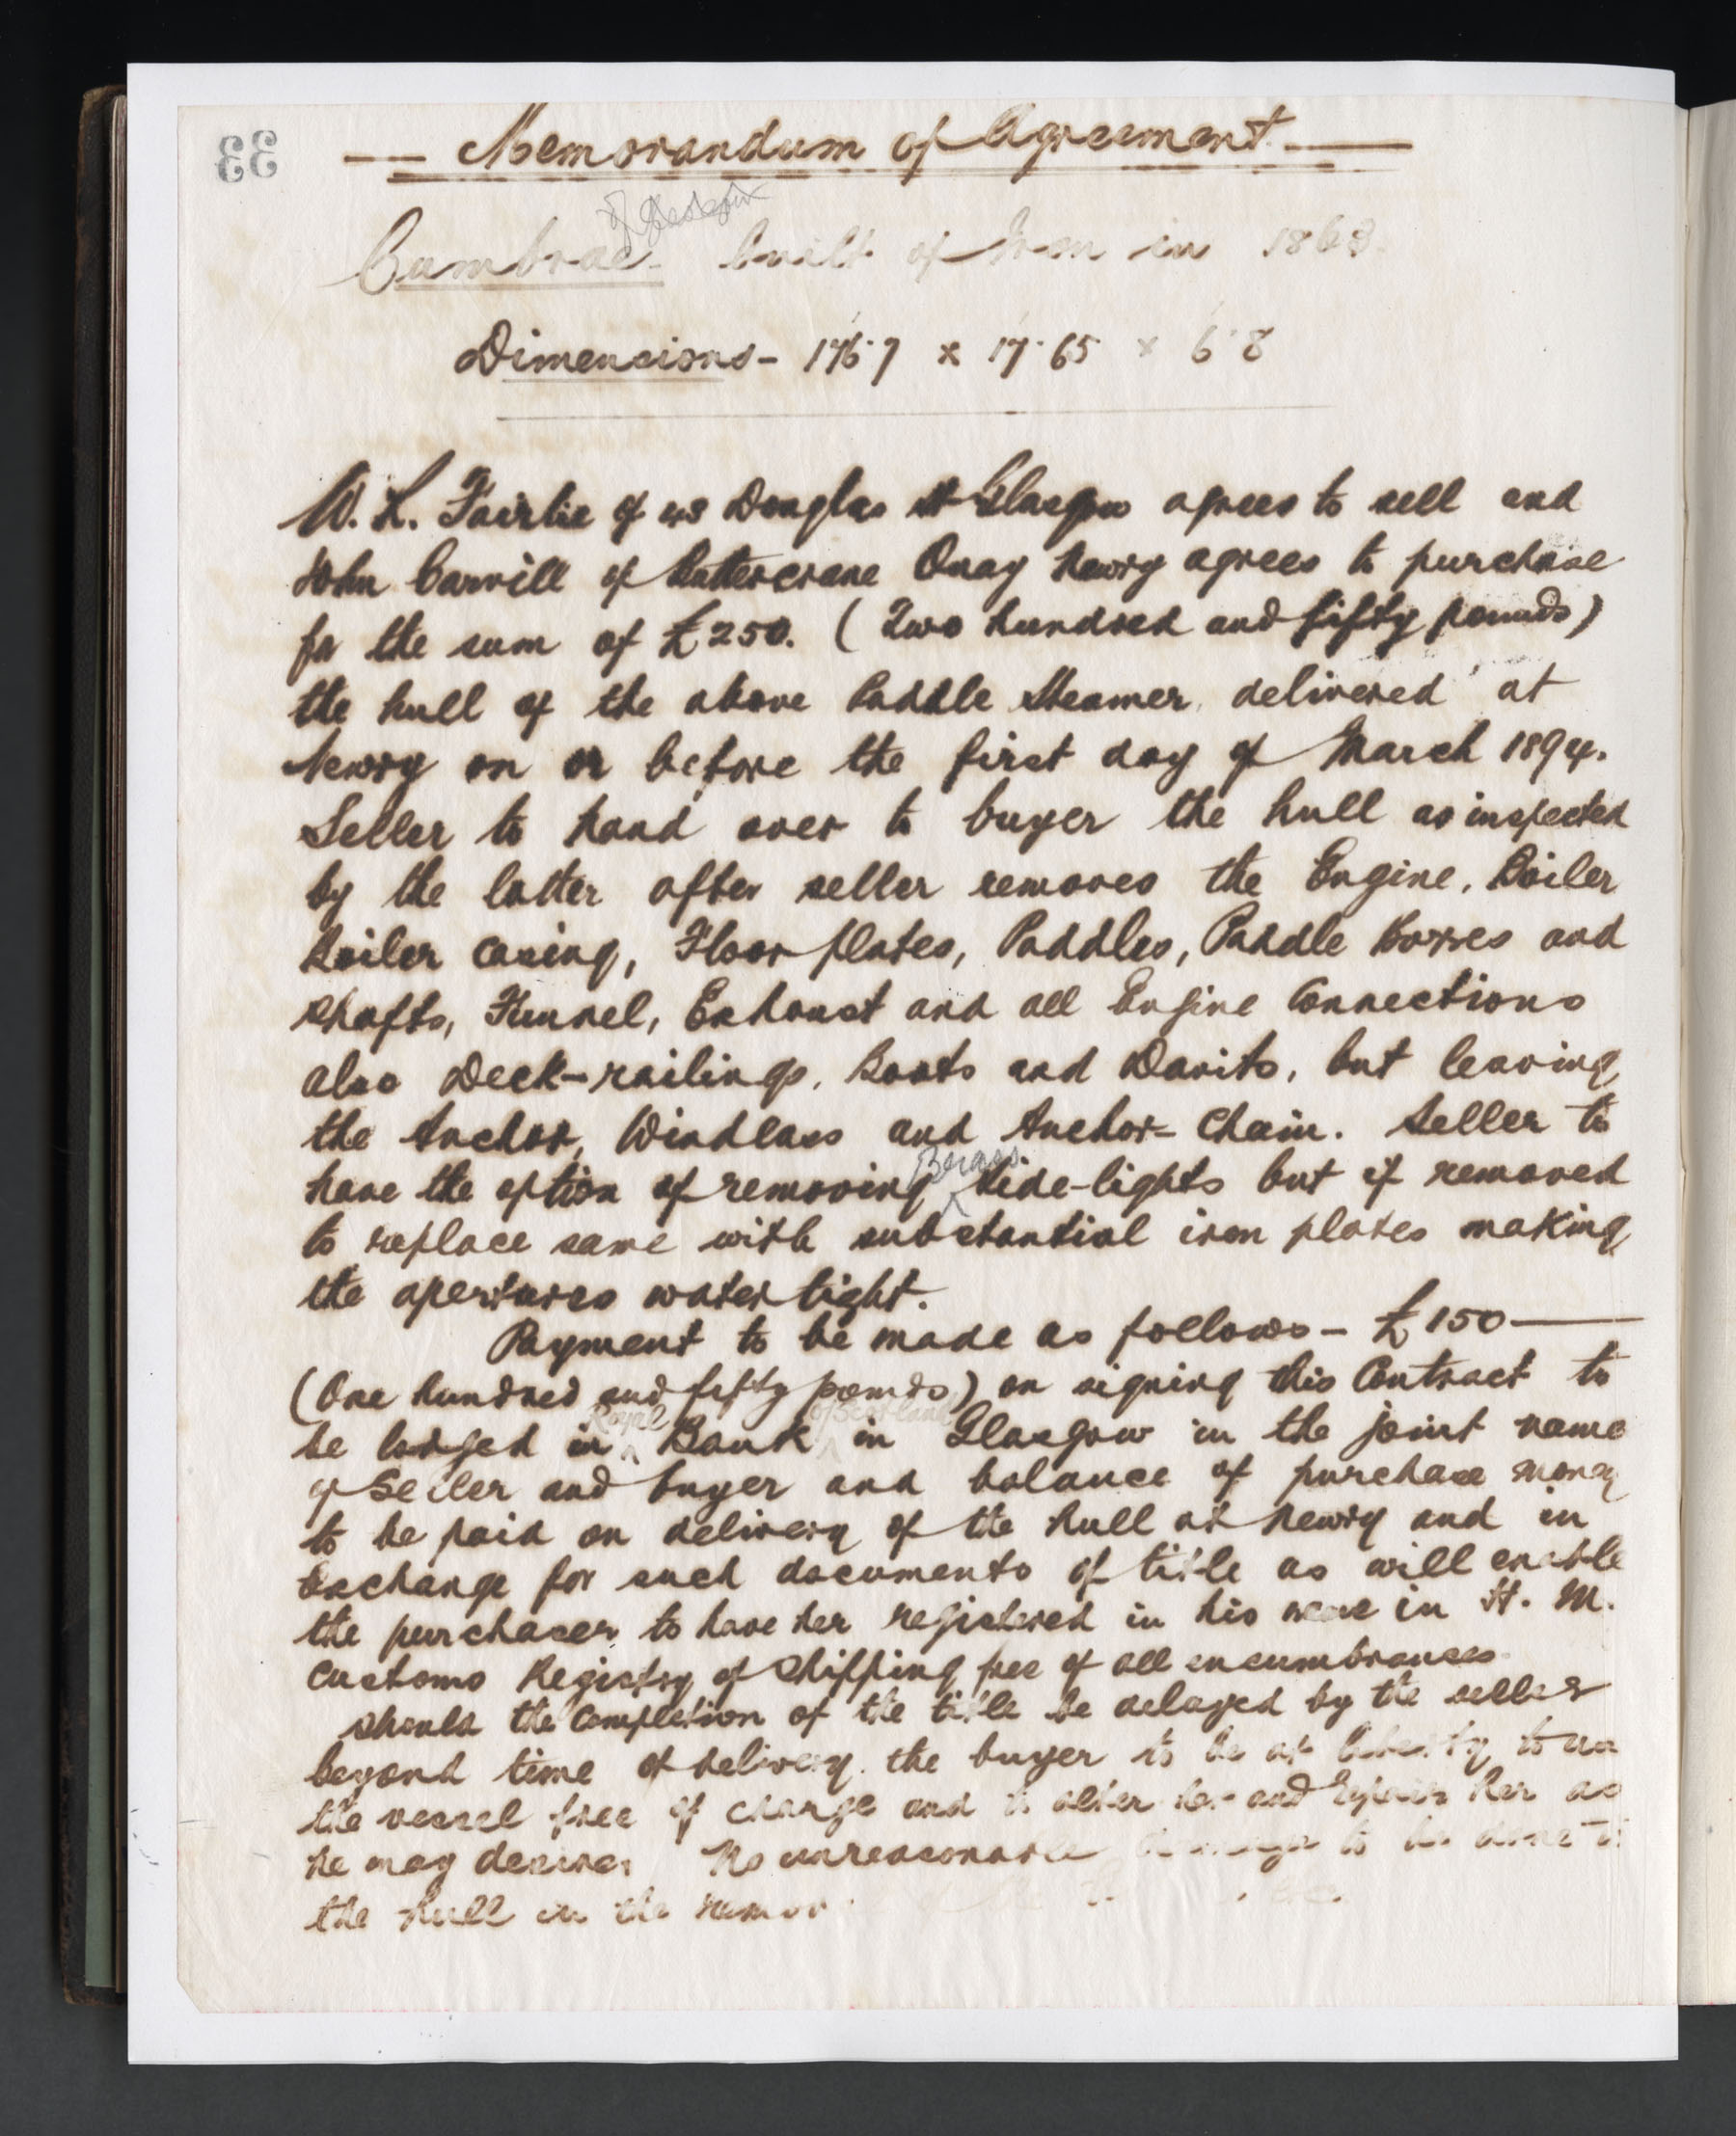 33
Memorandum of Agreement.
of Glasgow
Cumbrae. built of Iron in 1863.
Dimensions - 176.7 x 17.65 x 6.8
W. L. Fairlie of 43 Douglas St Glasgow agrees to sell and
John Carvill of Buttercrane Quay Newry agrees to purchase
for the sum of £250. (Two hundred and fifty pounds)
the hull of the above Paddle Steamer, delivered at
Newry on or before the first day of March 1894.
Seller to hand over to buyer the hull as inspected
by the latter after seller removes the Engine, Boiler
Boiler casing, Floor plates, Paddles, Paddle Boxes and
shafts, Funnel, Exhaust and all Engine Connections
also Deck-railings, Boats and Davits, but leaving
the Anchor, Windlass and Anchor-Chain. Seller to
have the option of removing Brass side-lights but if removed
to replace same with substantial iron plates making
the apertures water tight.
Payment to be made as follows - £150
(One hundred and fifty pounds) on signing this Contract to
be lodged in Royal Bank of Scotland in Glasgow in the joint name
of Seller and buyer and balance of purchase money
to be paid on delivery of the hull at Newry and in
Exchange for such documents of title as will enable
the purchaser to have her registered in his name in H. M.
Customs Registry of Shipping free of all encumbrances.
Should the Completion of the title be delayed by the seller
beyond time of delivery, the buyer to be at liberty to use
the vessel free of charge and to alter her and repair her as
he may desire. No unreasonable damage to be done to
the hull in the